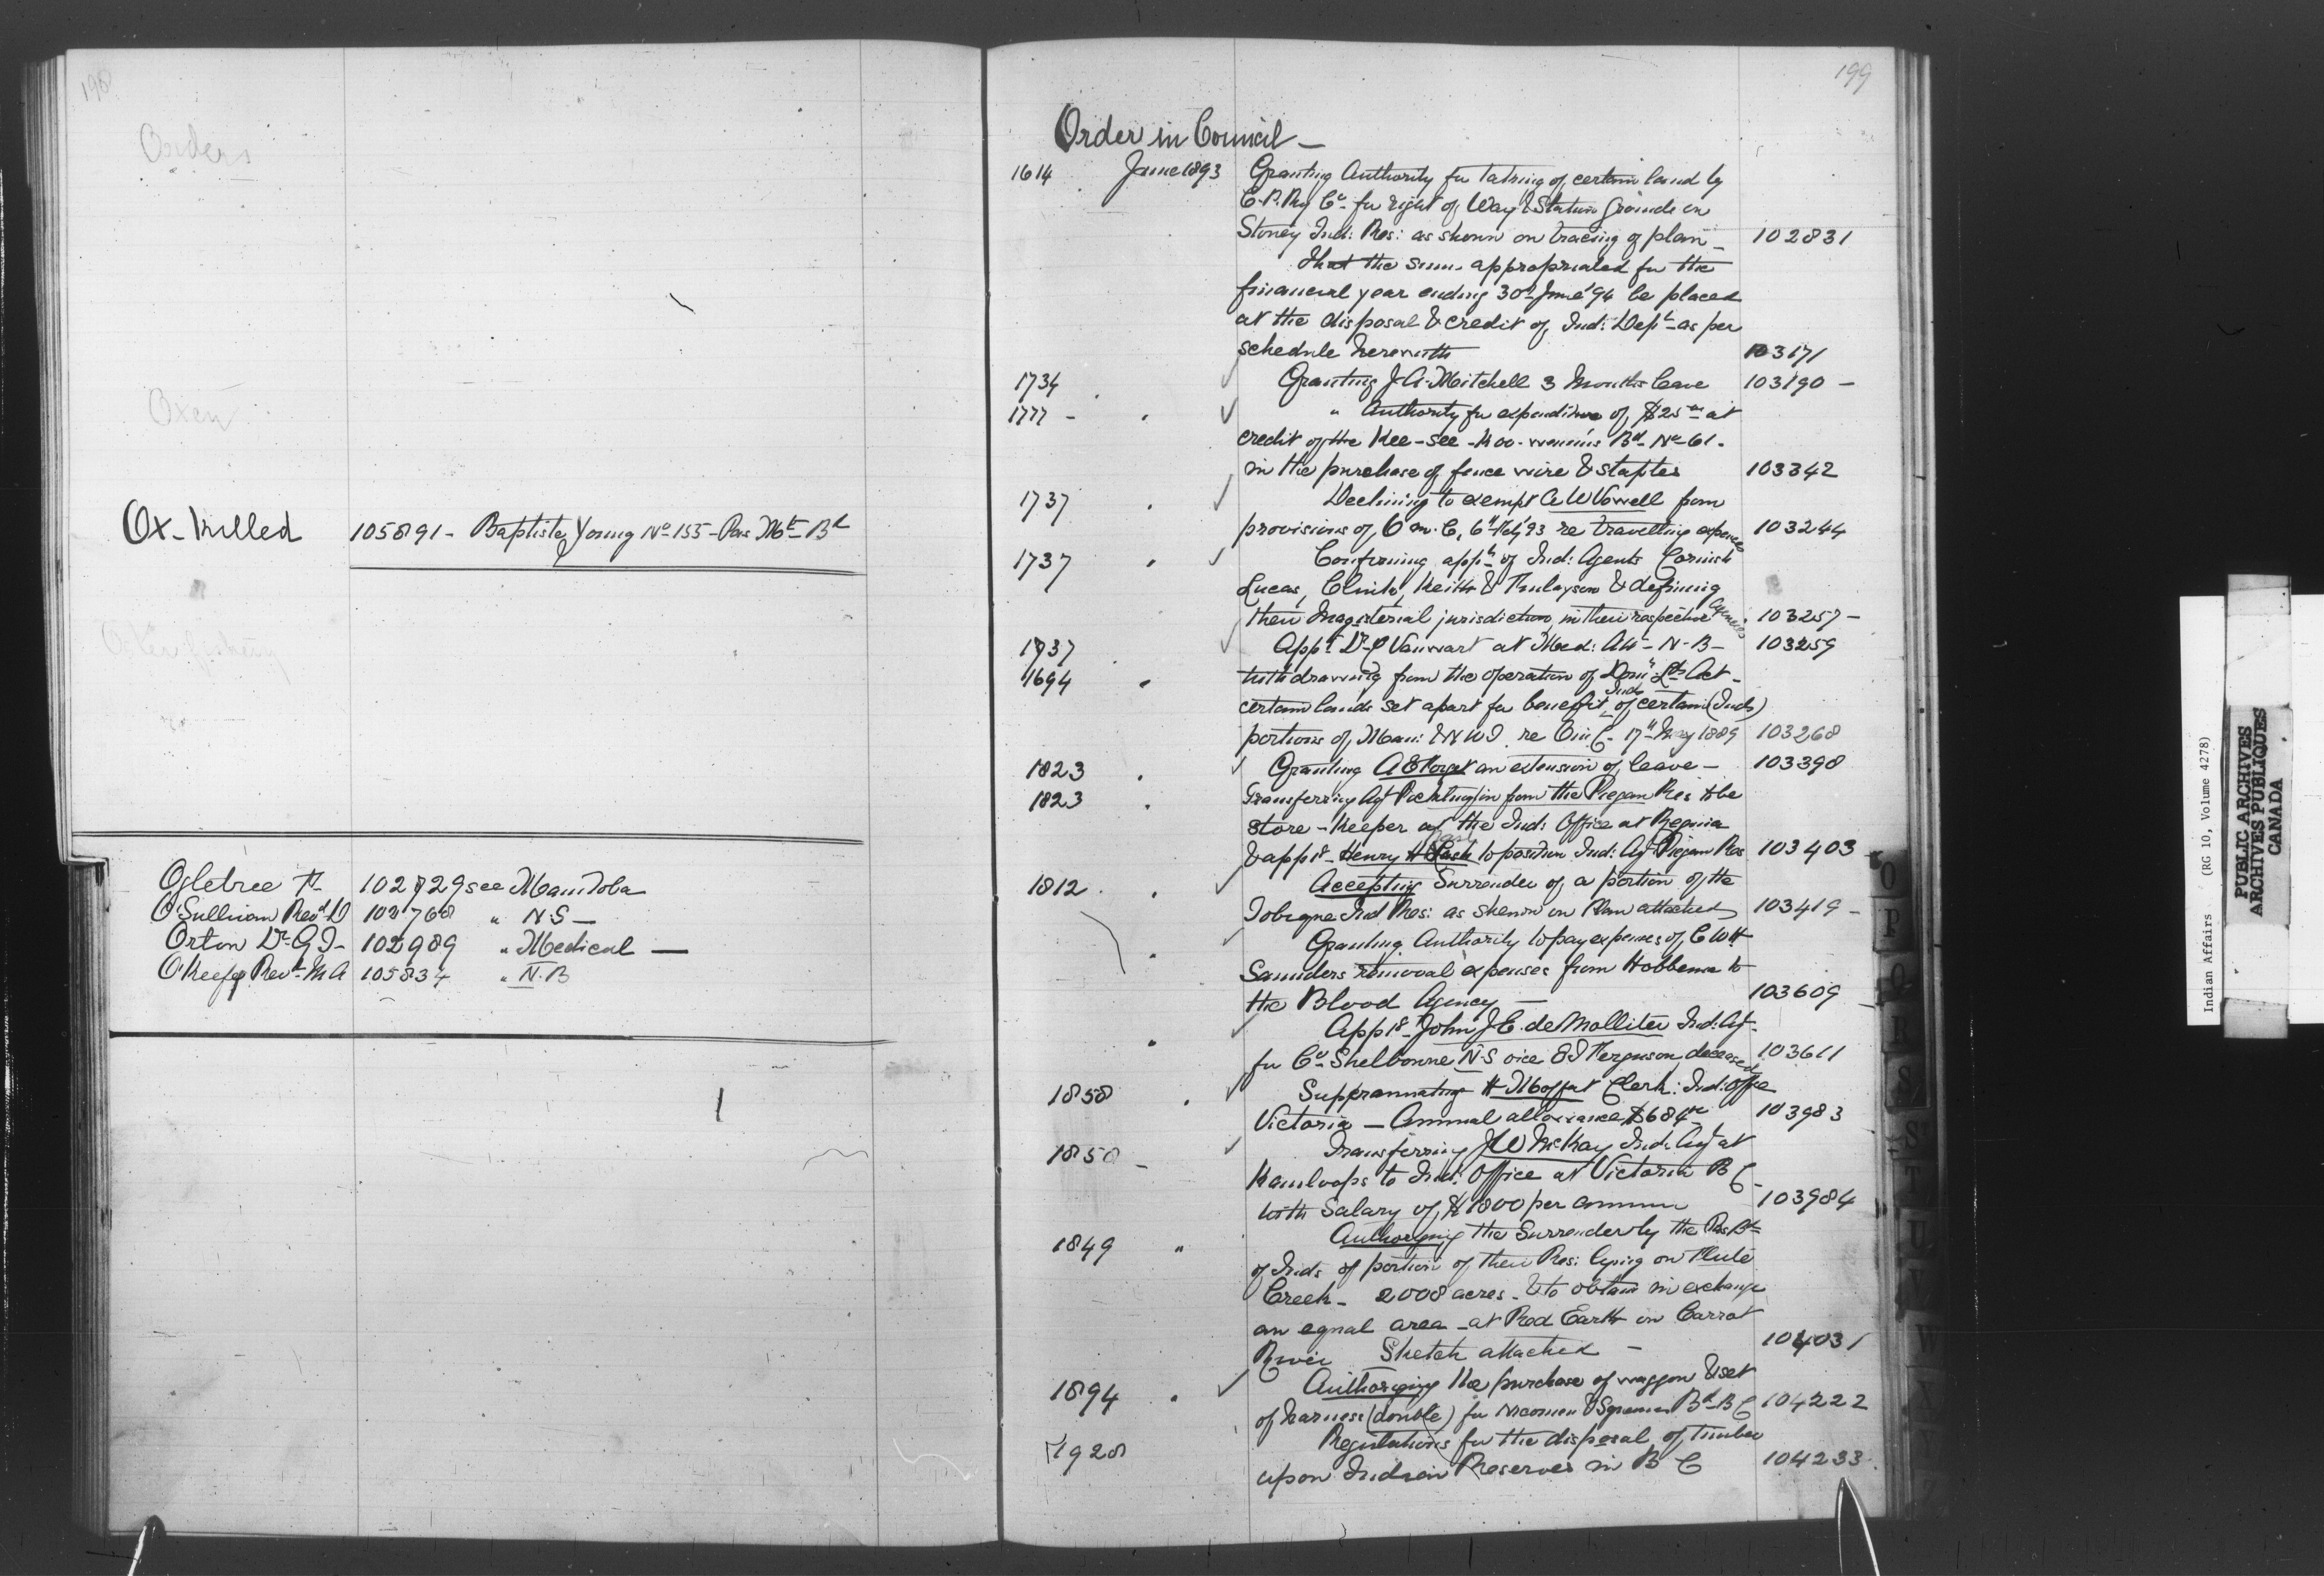 198
Orders
Oxen
Ox-killed 105891 - Baptiste Young No 155 - Pas Mtn Bd
Ogletree F 102729 see Manitoba
O'Sullivan Revd D 102768 " N.S -
Orton Dr G T - 102989 " Medical -
O'Keeffe Revd M A 105834 " N.B
199
Order in Council -
1614 June 1893 Granting Authority for taking of certain land by
C.P. Ry Co for right of Way & Station Grounds in
Stoney Ind: Res: as shown on tracing of plan - 102831
That the sum appropriated for the
financial year ending 30th June '94 be placed
at the disposal & credit of Ind: Dept as per
schedule herewith 103171
1734 Granting J. A. Mitchell 3 Months leave 103190 -
1777 - " Authority for expenditure of $25 00 at
credit of the Kee-see-koo-wenin's Bd No 61.
in the purchase of fence wire & staples 103342
1737 Declining to exempt A W Vowell from
provisions of O in C, 6th Feby '93 re travelling expenses 103244
1737 Confirming appt of Ind: Agents Cornish
Lucas, Clink, Keith & Finlayson & defining
their Magisterial jurisdiction in their respective Agencies 103257 -
1737 Appt Dr Vanwart at Med: Att - N-B - 103259
1694 Withdrawing from the operation of Domn Lds Act -
certain lands set apart for benefit of Inds certain (Inds)
portions of Man: & N W T re O in C - 17th May 1889 103268
1823 Granting A E Forget an extension of leave - 103398
1823 Transferring Agt Pocklington from the Piegan Res to be
store-keeper at the Ind: Office at Regina
& appts Henry Nash to position Ind: Agt Piegan Res 103403
1812 Accepting Surrender of a portion of the
Tobique Ind Res: as shewn on Plan attached 103419 -
Granting Authority to pay expenses of C W H
Saunders removal expenses from Hobbema to
the Blood Agency - 103609
Appts John J. E. de Molliter Ind: Agt
for Co Shelbourne N-S vice Ferguson deceased 103611
1858 Superannuating H Moffat Clerk: Ind: Office
Victoria - Annual allowance $684 00 103983
1858 - Transferring J W McKay Ind: Agt at
Kamloops to Ind: Office at Victoria B C -
with Salary of $1800 per annum 103984
1849 " Authorizing the Surrender by the Pas Bd
of Inds of portion of their Res: lying on Flute
Creek - 2008 acres - & to obtain in exchange
an equal area - at Red Earth on Carrot
River Sketch attached - 104031
1894 Authorizing the purchase of waggon & set
of harness (double) for Nicomen & Bd - B C 104222
1928 Regulations for the disposal of timber
upon Indian Reserves in B C 104233.
O
P
Q
R
S
T
U
W
Z
Indian Affairs (RG 10, Volume 4278)
PUBLIC ARCHIVES
ARCHIVES PUBLIQUES
CANADA